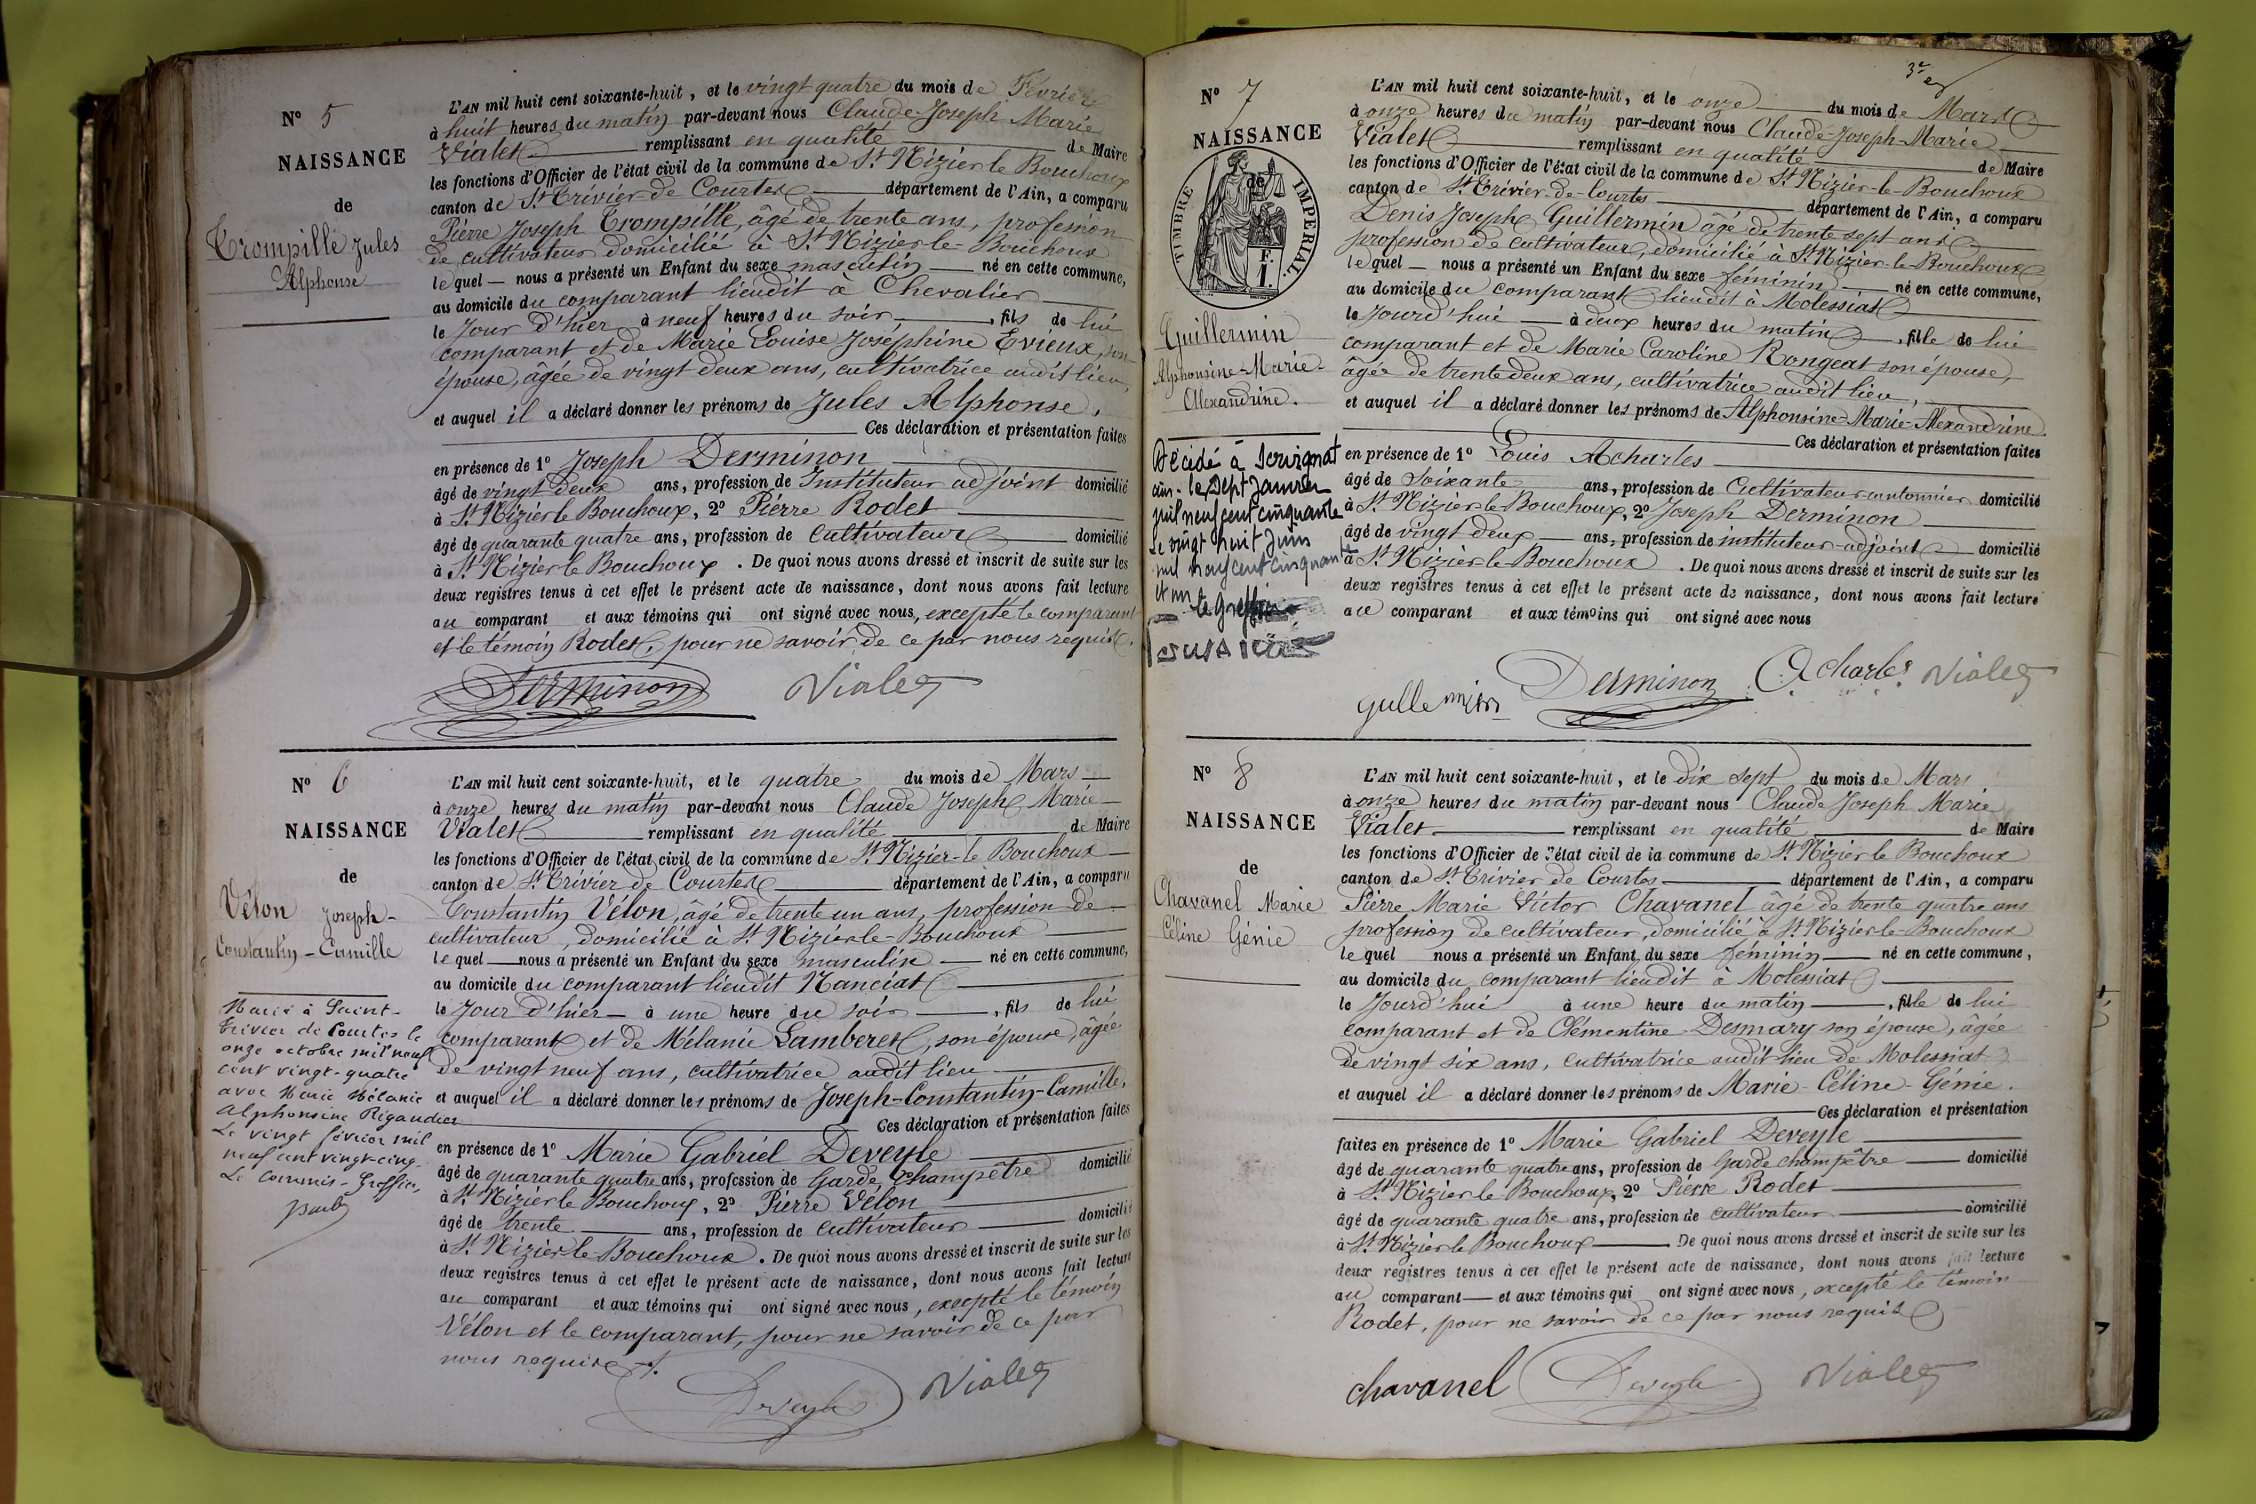 N° 5
NAISSANCE
de
Trompille Jules
Alphonse
L'AN mil huit cent soixante-huit, et le vingt quatre du mois de Fevrier
à huit heures du matin par-devant nous Claude Joseph Marie
Vialet remplissant en qualité de Maire
les fonctions d'Officier de l'état civil de la commune de St Nizier le Bouchoux
canton de St Trivier de Courtes département de l'Ain, a comparu
Pierre Joseph Trompille, âgé de trente ans, profession
de cultivateur domicilié à St Nizier le Bouchoux
lequel nous a présenté un Enfant du sexe masculin né en cette commune,
au domicile du comparant lieudit à Chevalier
le Jour d'hier à neuf heures du soir, fils de lui
comparant et de Marie Louise Joséphine Evieux, son
épouse, âgée de vingt deux ans, cultivatrice audit lieu,
et auquel il a déclaré donner les prénoms de Jules Alphonse.
Ces déclaration et présentation faites
en présence de 1° Joseph Derminon
âgé de vingt deux ans, profession de Instituteur adjoint domicilié
à St Nizier le Bouchoux, 2° Pierre Rodet
âgé de quarante quatre ans, profession de cultivateur domicilié
à St Nizier le Bouchoux. De quoi nous avons dressé et inscrit de suite sur les
deux registres tenus à cet effet le présent acte de naissance, dont nous avons fait lecture
au comparant et aux témoins qui ont signé avec nous, excepté le comparant
et le témoin Rodet, pour ne savoir de ce par nous requis.
Derminon Vialet
N° 6
NAISSANCE
de
Vélon Joseph-
Constantin-Camille
Marié à Saint-
Trivier de Courtes le
onze octobre mil neuf
cent vingt-quatre
avec Marie Mélanie
Alphonsine Rigaudier
Le vingt février mil
neuf cent vingt-cinq.
Le Commis-Greffier,
L'AN mil huit cent soixante-huit, et le quatre du mois de Mars
à onze heures du matin par-devant nous Claude Joseph Marie
Vialet remplissant en qualité de Maire
les fonctions d'Officier de l'état civil de la commune de St Nizier-le Bouchoux
canton de St Trivier de Courtes département de l'Ain, a comparu
Constantin Vélon, âgé de trente un ans, profession de
cultivateur, domicilié à St Nizier-le-Bouchoux
lequel nous a présenté un Enfant du sexe masculin né en cette commune,
au domicile du comparant lieudit Nanciat
le Jour d'hier à une heure du soir, fils de lui
comparant et de Mélanie Lamberet, son épouse, âgée
de vingt neuf ans, cultivatrice audit lieu
et auquel il a déclaré donner les prénoms de Joseph-Constantin-Camille.
Ces déclaration et présentation faites
en présence de 1° Marie Gabriel Deveyle
âgé de quarante quatre ans, profession de Garde Champêtre domicilié
à St Nizier le Bouchoux, 2° Pierre Vélon
âgé de trente ans, profession de cultivateur domicilié
à St Nizier-le-Bouchoux. De quoi nous avons dressé et inscrit de suite sur les
deux registres tenus à cet effet le présent acte de naissance, dont nous avons fait lecture
au comparant et aux témoins qui ont signé avec nous, excepté le témoin
Vélon et le comparant, pour ne savoir de ce par
nous requis.
Deveyle Vialet
N° 7
NAISSANCE
de
TIMBRE IMPERIAL.
1 F.
Guillermin
Alphonsine-Marie-
Alexandrine.
Décédé à Servignat
ain. le sept Janvier
mil neuf cent cinquante
Le vingt huit Juin
mil neuf cent cinquante
et un le Greffier
L'AN mil huit cent soixante-huit, et le onze du mois de Mars
à onze heures du matin par-devant nous Claude-Joseph-Marie
Vialet remplissant en qualité de Maire
les fonctions d'Officier de l'état civil de la commune de St Nizier-le-Bouchoux
canton de St Trivier-de-Courtes département de l'Ain, a comparu
Denis Joseph Guillermin âgé de trente sept ans
profession de cultivateur, domicilié à St Nizier-le-Bouchoux
lequel nous a présenté un Enfant du sexe féminin né en cette commune,
au domicile du comparant lieudit à Molessiat
le Jourd'hui à deux heures du matin, fille de lui
comparant et de Marie Caroline Rongeat son épouse,
âgée de trente deux ans, cultivatrice audit lieu,
et auquel il a déclaré donner les prénoms de Alphonsine-Marie-Alexandrine
Ces déclaration et présentation faites
en présence de 1° Louis Acharles
âgé de Soixante ans, profession de Cultivateur-cantonnier domicilié
à St Nizier-le-Bouchoux, 2° Joseph Derminon
âgé de vingt deux ans, profession de instituteur-adjoint domicilié
à St Nizier-le-Bouchoux. De quoi nous avons dressé et inscrit de suite sur les
deux registres tenus à cet effet le présent acte de naissance, dont nous avons fait lecture
au comparant et aux témoins qui ont signé avec nous
gullemin Derminon Acharles Vialet
N° 8
NAISSANCE
de
Chavanel Marie
Céline Génie
L'AN mil huit cent soixante-huit, et le dix sept du mois de Mars
à onze heures du matin par-devant nous Claude Joseph Marie
Vialet remplissant en qualité de Maire
les fonctions d'Officier de l'état civil de la commune de St Nizier le Bouchoux
canton de St Trivier de Courtes département de l'Ain, a comparu
Pierre Marie Victor Chavanel âgé de trente quatre ans
profession de cultivateur, domicilié à St Nizier-le-Bouchoux
lequel nous a présenté un Enfant du sexe féminin né en cette commune,
au domicile du comparant lieudit à Molessiat
le Jourd'hui à une heure du matin, fille de lui
comparant et de Clémentine Desmary son épouse, âgée
de vingt six ans, cultivatrice audit lieu de Molessiat
et auquel il a déclaré donner les prénoms de Marie-Céline-Génie.
Ces déclaration et présentation
faites en présence de 1° Marie Gabriel Deveyle
âgé de quarante quatre ans, profession de Garde champêtre domicilié
à St Nizier le Bouchoux, 2° Pierre Rodet
âgé de quarante quatre ans, profession de cultivateur domicilié
à St Nizier le Bouchoux De quoi nous avons dressé et inscrit de suite sur les
deux registres tenus à cet effet le présent acte de naissance, dont nous avons fait lecture
au comparant et aux témoins qui ont signé avec nous, excepté le témoin
Rodet, pour ne savoir de ce par nous requis
chavanel Deveyle Vialet